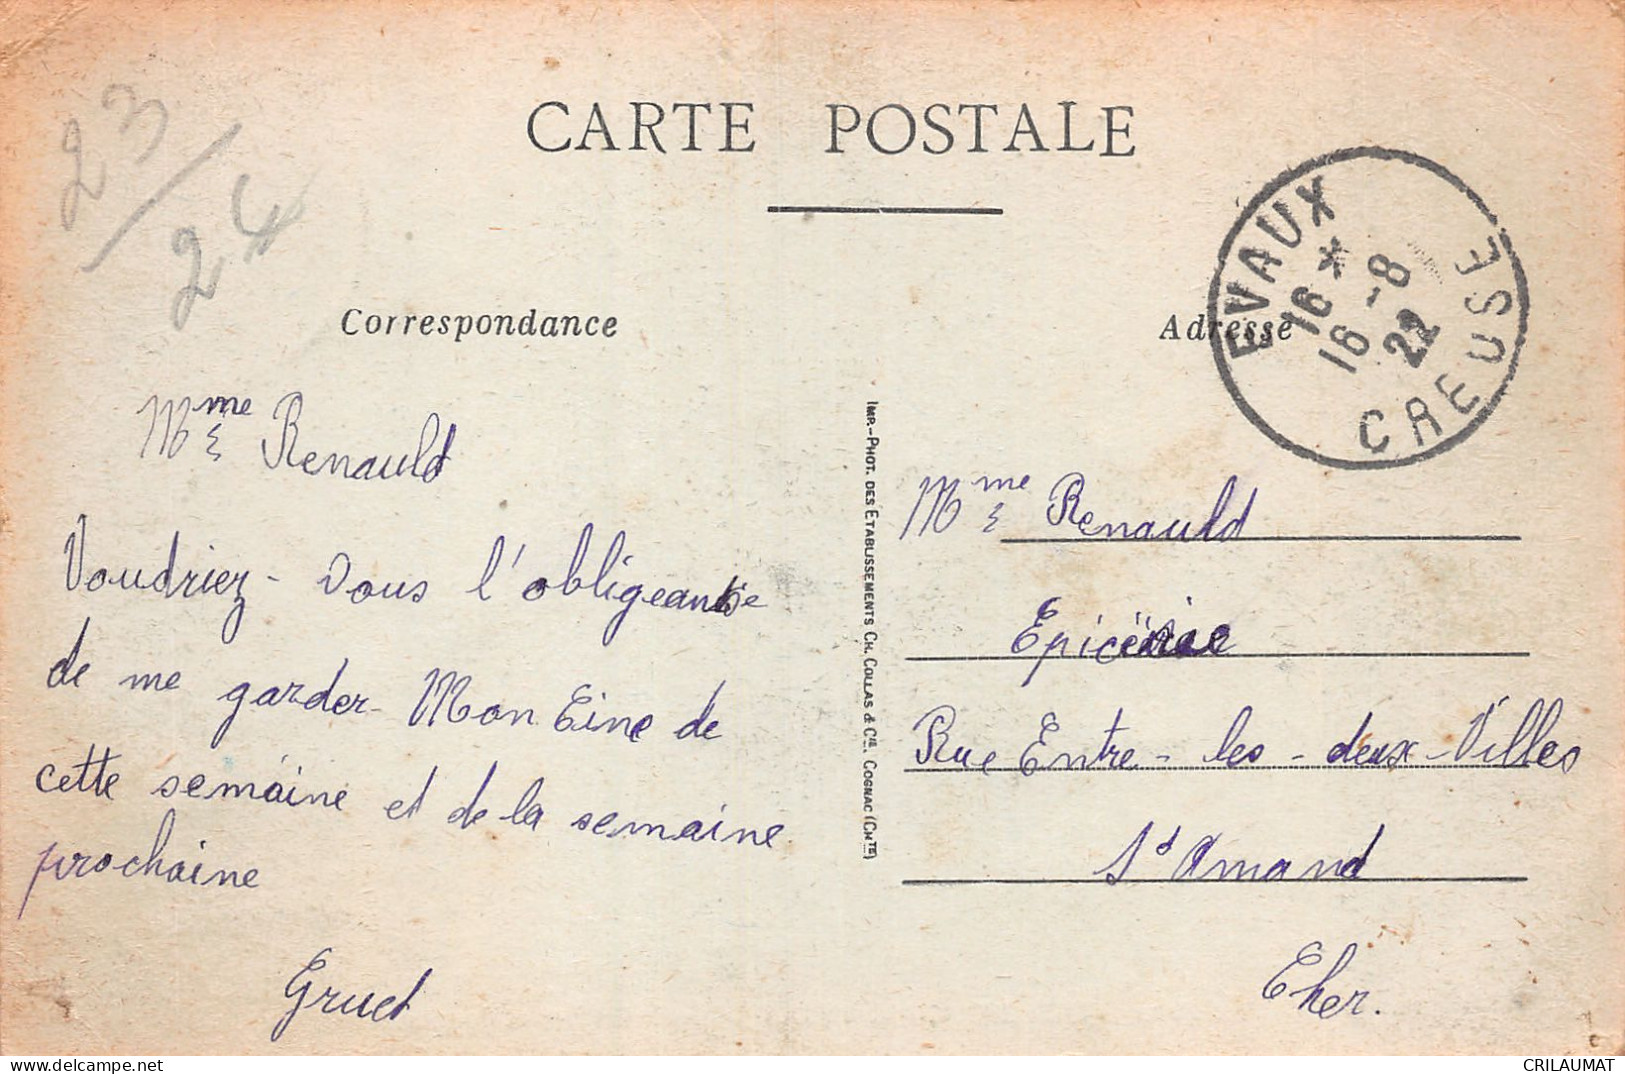 23/24
CARTE POSTALE
Correspondance
Adresse
EVAUX
*
16
16 -8
22
CREUSE
Mme Renauld
Voudriez-vous l'obligeance
de me garder Mon Cine de
cette semaine et de la semaine
prochaine
Gruet
IMP.-PHOT. DES ETABLISSEMENTS CH. COLLAS & Cie COGNAC (CHTE)
Mme Renauld
Epicerie
Rue Entre-les-deux-Villes
St Amand
Cher.
CRILAUMAT